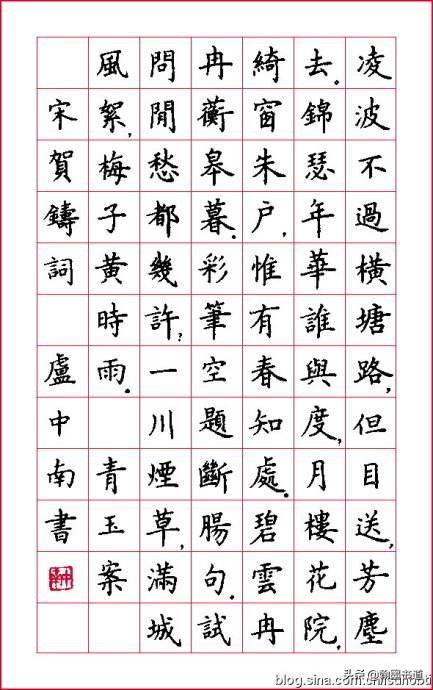 凌波不過橫塘路,但目送,芳塵
去。錦瑟年華誰與度,月樓花院,
綺窗朱户,惟有春知處。碧雲冉
冉蘅皋暮。彩筆空題斷腸句。試
問閒愁都幾許?一川煙草,滿城
風絮,梅子黃時雨。 青玉案
宋賀鑄詞 盧中南書
头条@翰墨书道